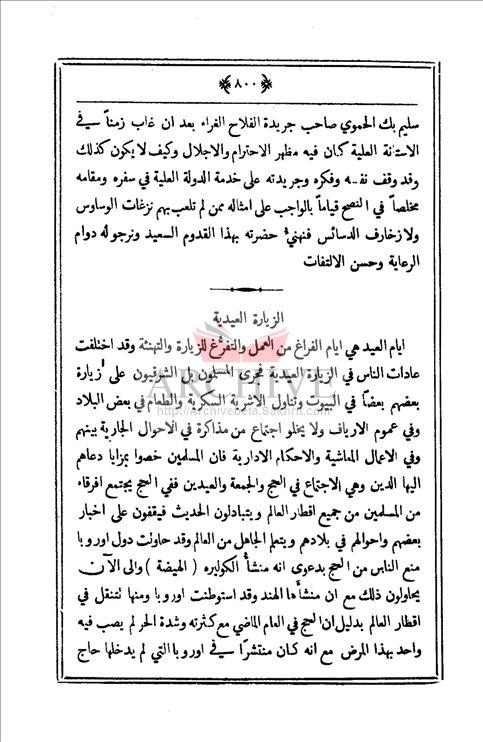 ﴿٨٠٠﴾
سليم بك الحموي صاحب جريدة الفلاح الغراء بعد ان غاب زمناً في
الاستانة العلية كان فيه مظهر الاحترام والاجلال وكيف لا يكون كذلك
وقد وقف نفسه وفكره وجريدته على خدمة الدولة العلية في سفره ومقامه
مخلصاً في النصح قياماً بالواجب على امثاله ممن لم تلعب بهم نزغات الوساوس
ولا زخارف الدسائس فنهنيء حضرته بهذا القدوم السعيد ونرجو له دوام
الرعاية وحسن الالتفات
الزيارة العيدية
ايام العيد هي ايام الفراغ من العمل والتفرُّغ للزيارة والتهنئة وقد اختلفت
عادات الناس في الزيارة العيدية فجرى المسلمون بل الشرقيون على زيارة
بعضهم بعضاً في البيوت وتناول الاشربة السكرية والطعام في بعض البلاد
وفي عموم الارياف ولا يخلو اجتماع من مذاكرة في الاحوال الجارية بينهم
وفي الاعمال المعاشية والاحكام الادارية فان المسلمين خصوا بمزايا دعاهم
اليها الدين وهي الاجتماع في الحج والجمعة والعيدين ففي الحج يجتمع افرقاء
من المسلمين من جميع اقطار العالم ويتبادلون الحديث فيقفون على اخبار
بعضهم واحوالهم في بلادهم ويتعلم الجاهل من العالم وقد حاولت دول اوروبا
منع الناس من الحج بدعوى انه منشأ الكوليره ( الهيضة ) والى الآن
يحاولون ذلك مع ان منشأها الهند وقد استوطنت اوروبا ومنها تنتقل في
اقطار العالم بدليل ان الحج في العام الماضي مع كثرته وشدة الحر لم يصب فيه
واحد بهذا المرض مع انه كان منتشرًا في اوروبا التي لم يدخلها حاج
ARCHIVE
http://Archivebeta.Sakhrit.com